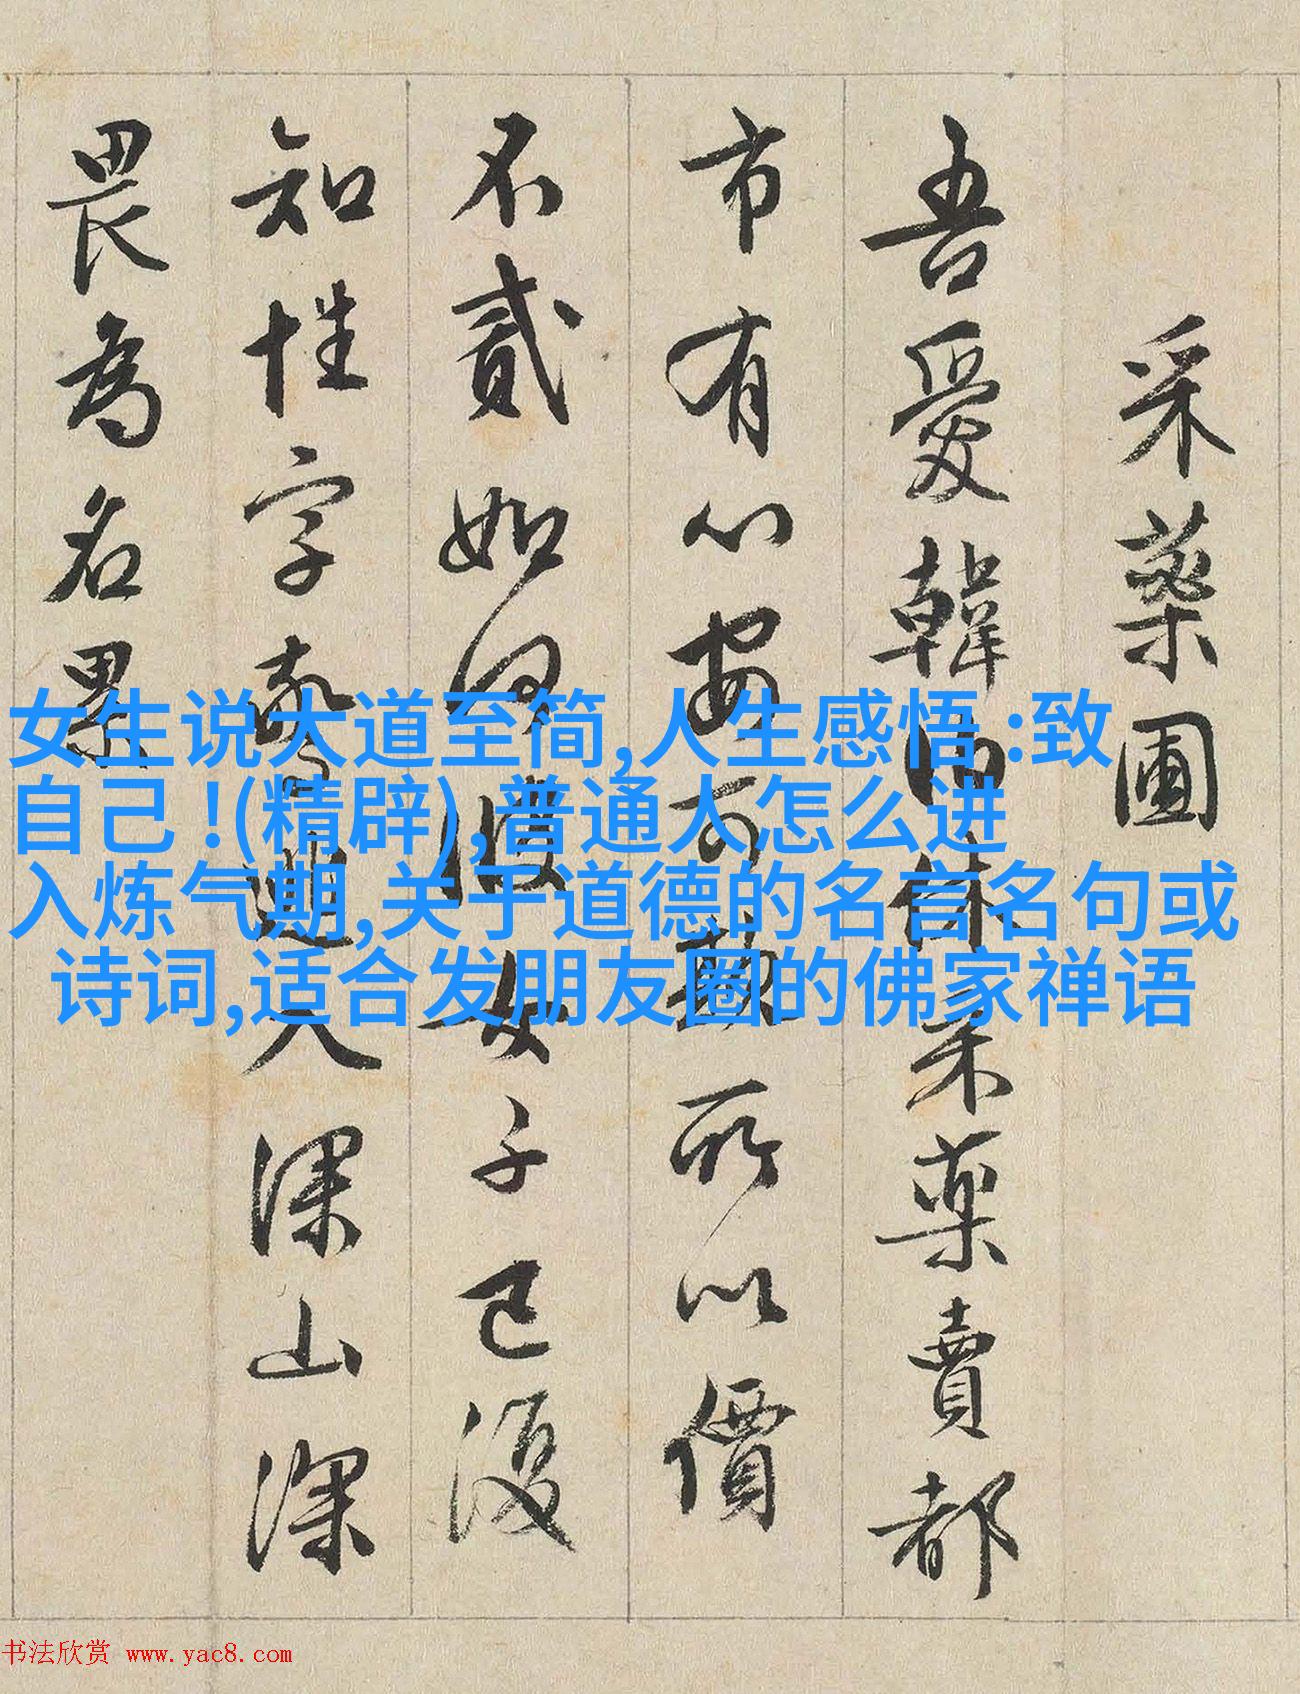 采藥圃
吾愛韓伯休采藥賣都
市有心安可欺所以價
不貳如何彼女子已復
知性字驚逃入深山深
畏為名累
女生说大道至简,人生感悟 : 致
自己 ! (精辟),普通人怎么进
入炼气期,关于道德的名言名句或
诗词,适合发朋友圈的佛家禅语
书法欣赏 www.yac8.com